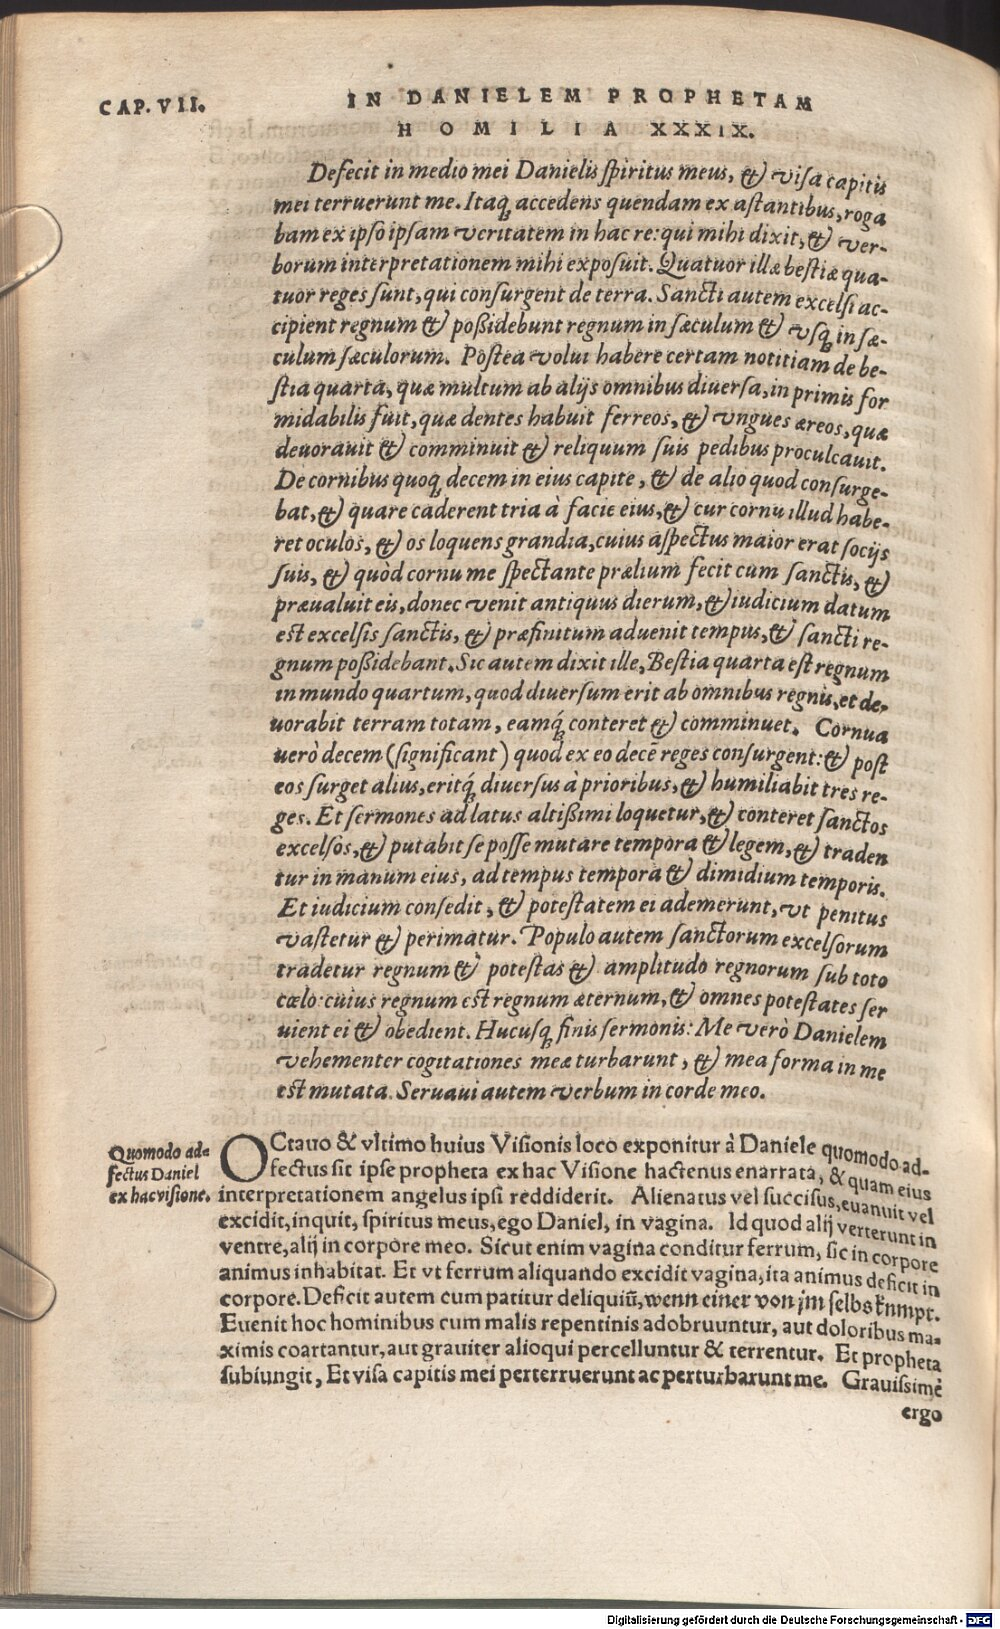 CAP. VII.
IN DANIELEM PROPHETAM
HOMILIA XXXIX.
Defecit in medio mei Danielis spiritus meus, & visa capitis
mei terruerunt me. Itaq; accedens quendam ex astantibus, roga
bam ex ipso ipsam veritatem in hac re: qui mihi dixit, & ver-
borum interpretationem mihi exposuit. Quatuor illæ bestiæ qua-
tuor reges sunt, qui consurgent de terra. Sancti autem excelsi ac-
cipient regnum & poßidebunt regnum in sæculum & vsq; in sæ-
culum sæculorum. Postea volui habere certam notitiam de be-
stia quarta, quæ multum ab alijs omnibus diuersa, in primis for
midabilis fuit, quæ dentes habuit ferreos, & vngues æreos, quæ
deuorauit & comminuit & reliquum suis pedibus proculcauit.
De cornibus quoq; decem in eius capite, & de alio quod consurge-
bat, & quare caderent tria à facie eius, & cur cornu illud habe-
ret oculos, & os loquens grandia, cuius aspectus maior erat socijs
suis, & quòd cornu me spectante prælium fecit cum sanctis, &
præualuit eis, donec venit antiquus dierum, & iudicium datum
est excelsis sanctis, & præfinitum aduenit tempus, & sancti re-
gnum poßidebant. Sic autem dixit ille, Bestia quarta est regnum
in mundo quartum, quod diuersum erit ab omnibus regnis, et de-
uorabit terram totam, eamq́; conteret & comminuet. Cornua
verò decem (significant) quod ex eo decẽ reges consurgent: & post
eos surget alius, eritq́; diuersus à prioribus, & humiliabit tres re-
ges. Et sermones ad latus altißimi loquetur, & conteret sanctos
excelsos, & putabit se posse mutare tempora & legem, & traden
tur in manum eius, ad tempus tempora & dimidium temporis.
Et iudicium consedit, & potestatem ei ademerunt, vt penitus
vastetur & perimatur. Populo autem sanctorum excelsorum
tradetur regnum & potestas & amplitudo regnorum sub toto
cœlo: cuius regnum est regnum æternum, & omnes potestates ser
uient ei & obedient. Hucusq; finis sermonis: Me verò Danielem
vehementer cogitationes meæ turbarunt, & mea forma in me
est mutata. Seruaui autem verbum in corde meo.
Quomodo ad-
fectus Daniel
ex hac visione.
OCtauo & vltimo huius Visionis loco exponitur à Daniele quomodo ad-
fectus sit ipse propheta ex hac Visione hactenus enarrata, & quam eius
interpretationem angelus ipsi reddiderit. Alienatus vel succisus, euanuit vel
excidit, inquit, spiritus meus, ego Daniel, in vagina. Id quod alij verterunt in
ventre, alij in corpore meo. Sicut enim vagina conditur ferrum, sic in corpore
animus inhabitat. Et vt ferrum aliquando excidit vagina, ita animus deficit in
corpore. Deficit autem cum patitur deliquiũ, wenn einer von jm selbs kumpt.
Euenit hoc hominibus cum malis repentinis adobruuntur, aut doloribus ma-
ximis coartantur, aut grauiter alioqui percelluntur & terrentur. Et propheta
subiungit, Et visa capitis mei perterruerunt ac perturbarunt me. Grauissimè
ergo
Digitalisierung gefördert durch die Deutsche Forschungsgemeinschaft - DFG